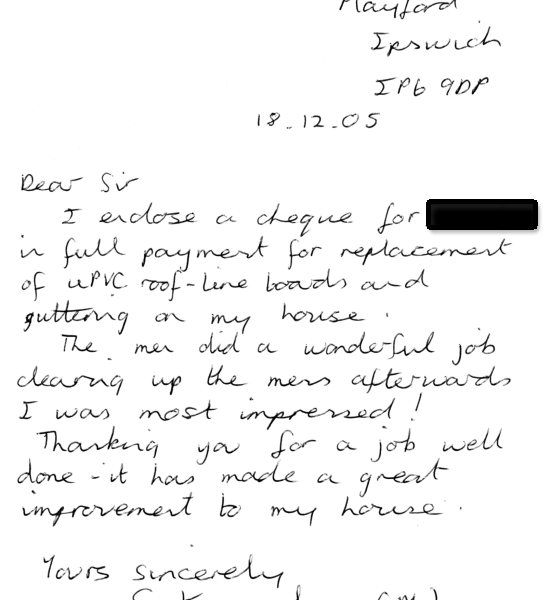 Playford
Ipswich
IP6 9DP
18.12.05
Dear Sir
I enclose a cheque for
in full payment for replacement
of uPVC roof-line boads and
guttering on my house.
The men did a wonderful job
clearing up the mess afterwards
I was most impressed!
Thanking you for a job well
done - it has made a great
improvement to my house.
Yours sincerely